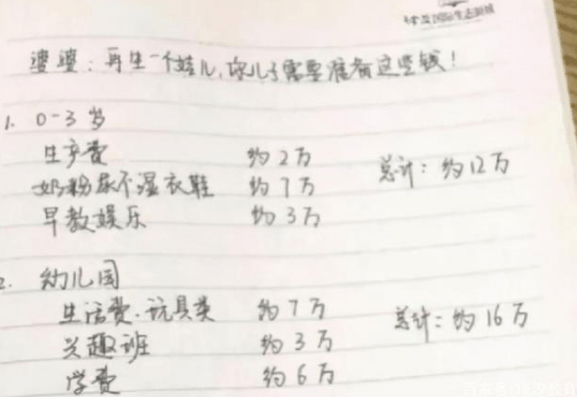 国际生态新城
婆婆：再生一个娃儿，你儿子需要准备这些钱！
1. 0-3岁
生产费 约2万
奶粉尿不湿衣鞋 约7万 总计：约12万
早教娱乐 约3万
2. 幼儿园
生活费、玩具类 约7万
兴趣班 约3万 总计：约16万
学费 约6万